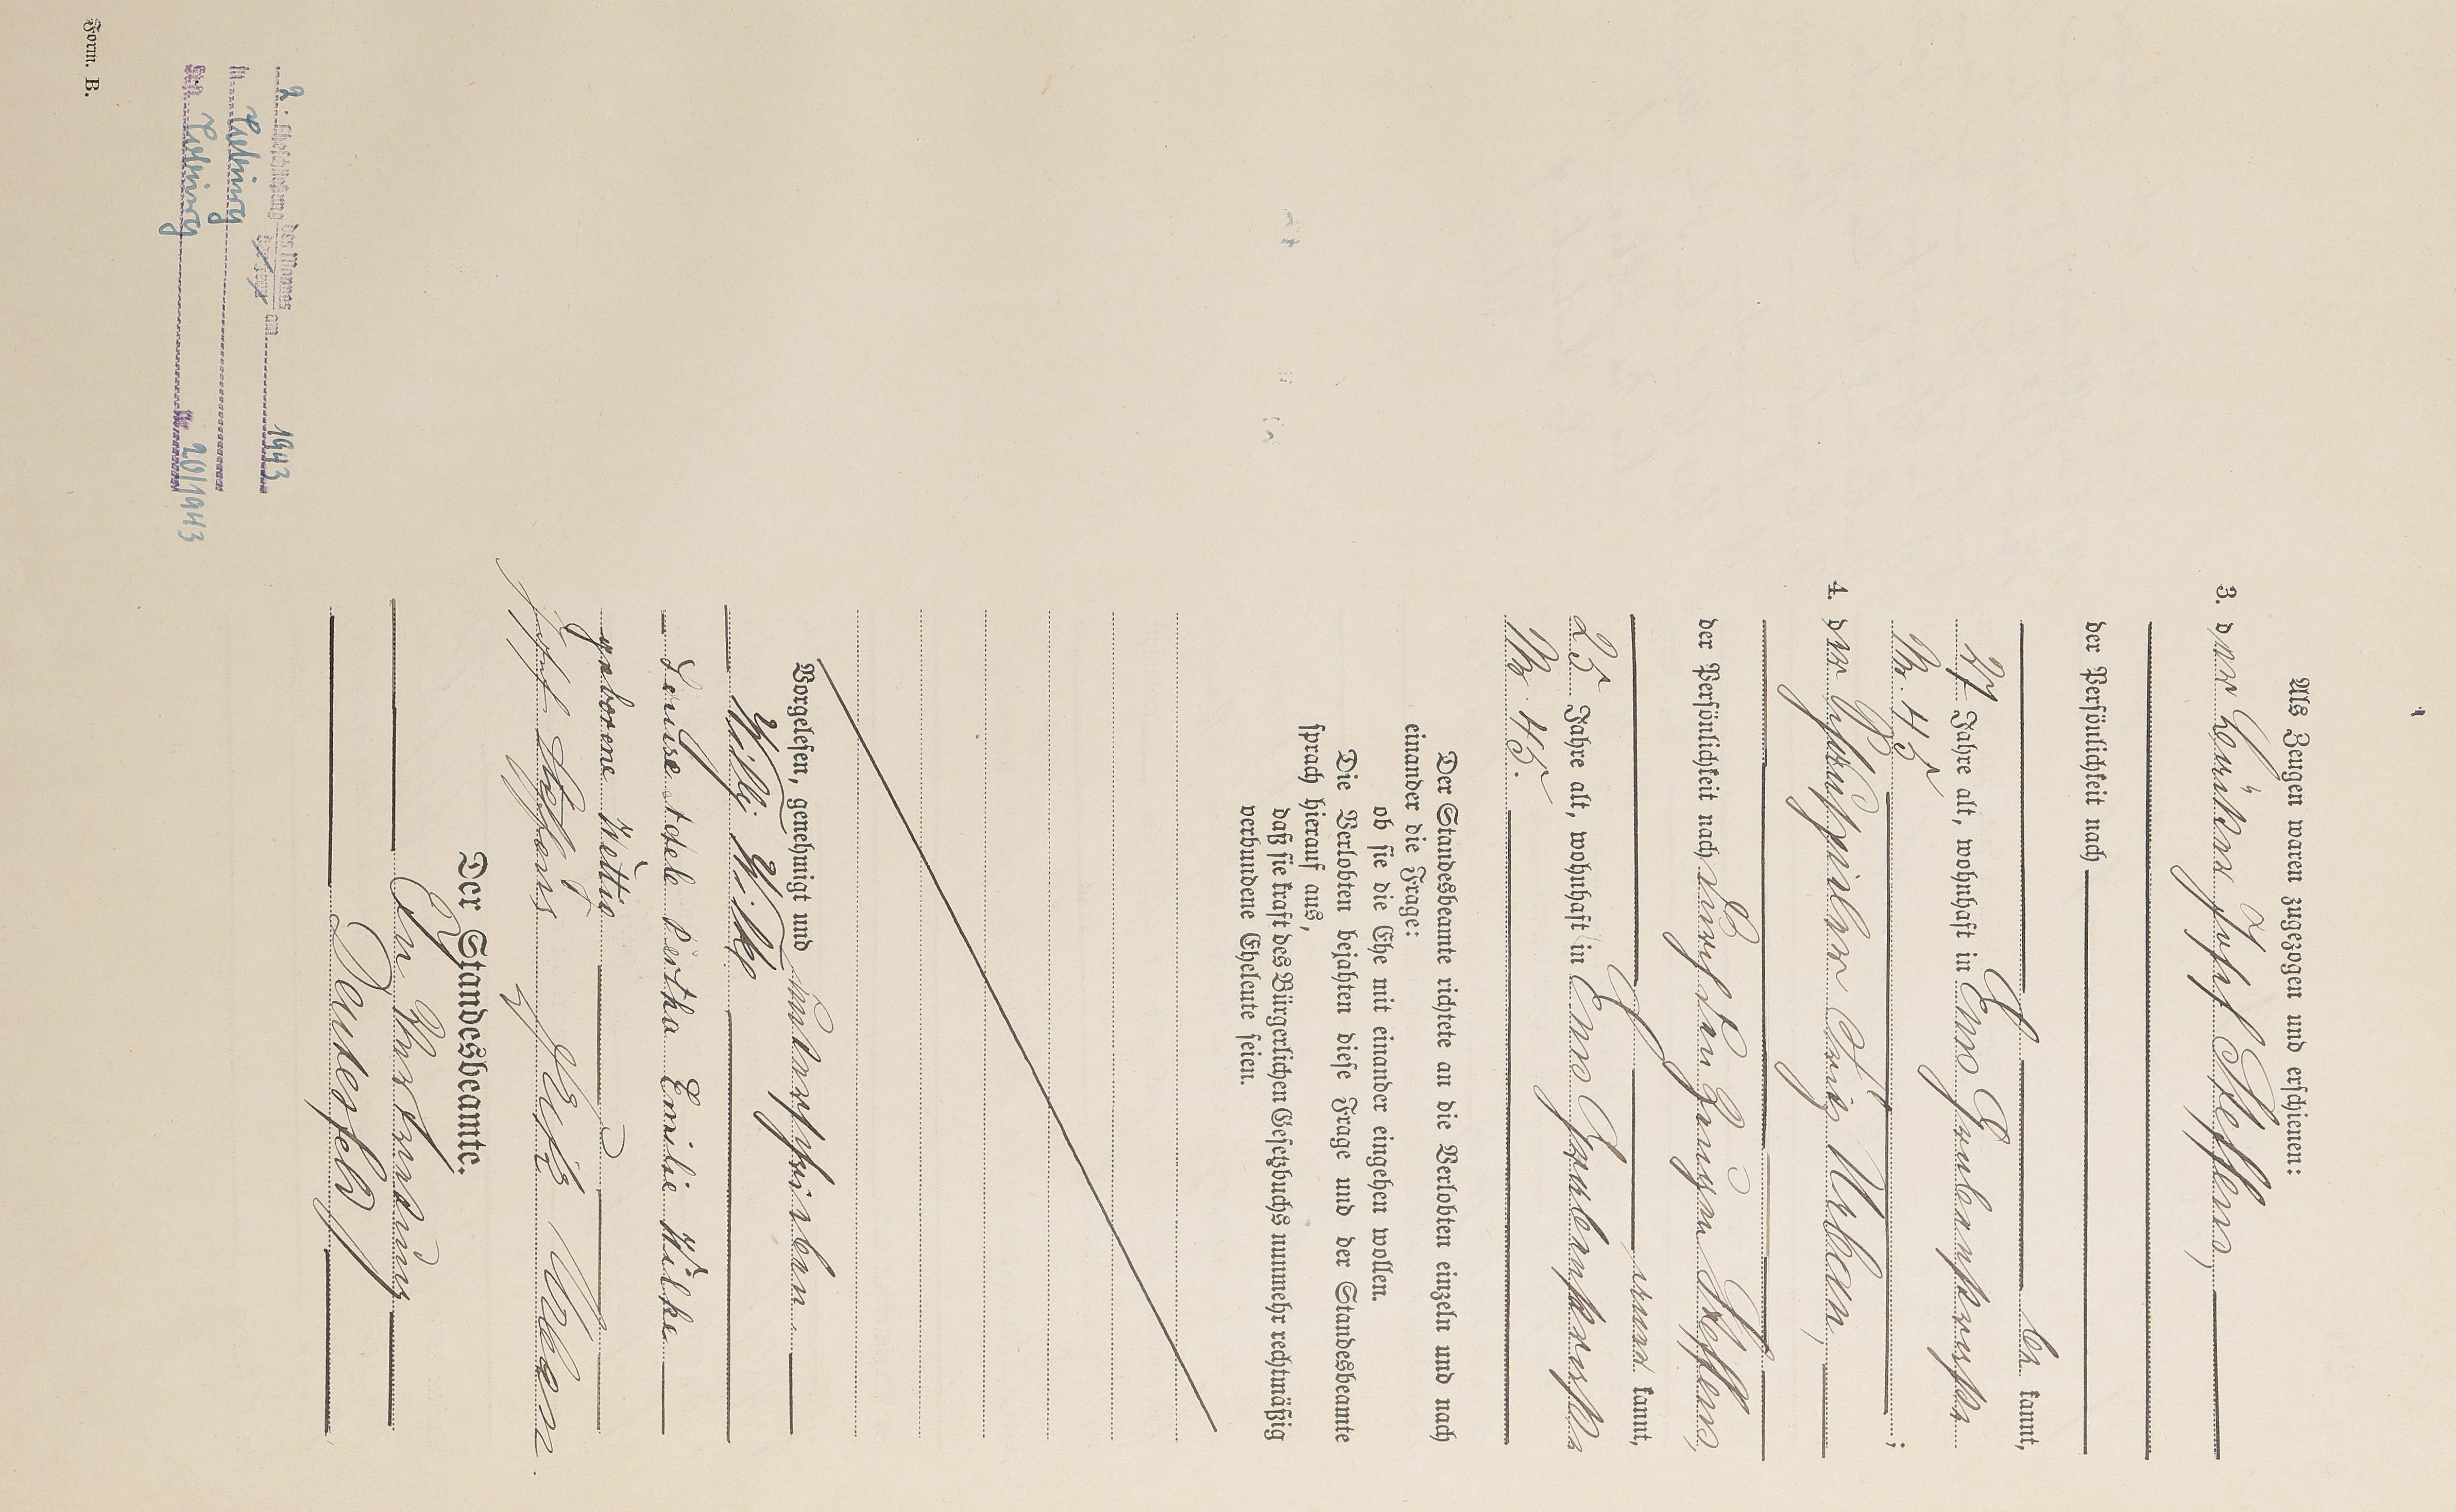 Als Zeugen waren zugezogen und erschienen:
3. der Josef Steffens,
der Persönlichkeit nach
be kannt,
27 Jahre alt, wohnhaft in
Nr. 45 ;
4. der Fritz Urban,
der Persönlichkeit nach durch den Zeugen Steffens,
aner kannt,
25 Jahre alt, wohnhaft in
Nr. 45.
Der Standesbeamte richtete an die Verlobten einzeln und nach
einander die Frage:
ob sie die Ehe mit einander eingehen wollen.
Die Verlobten bejahten diese Frage und der Standesbeamte
sprach hierauf aus,
daß sie kraft des Bürgerlichen Gesetzbuchs nunmehr rechtmäßig
verbundene Eheleute seien.
Vorgelesen, genehmigt und unterschrieben
Willy Wilke
Louise Adele Bertha Emilie Wilke
geborene Wettig
Josef Steffens Fritz Urban.
Der Standesbeamte.
In Vertretung
Deutesfeld
2. Eheschließung des Mannes
der Frau am 1943
in
Nr. 20/1943
Form. B.